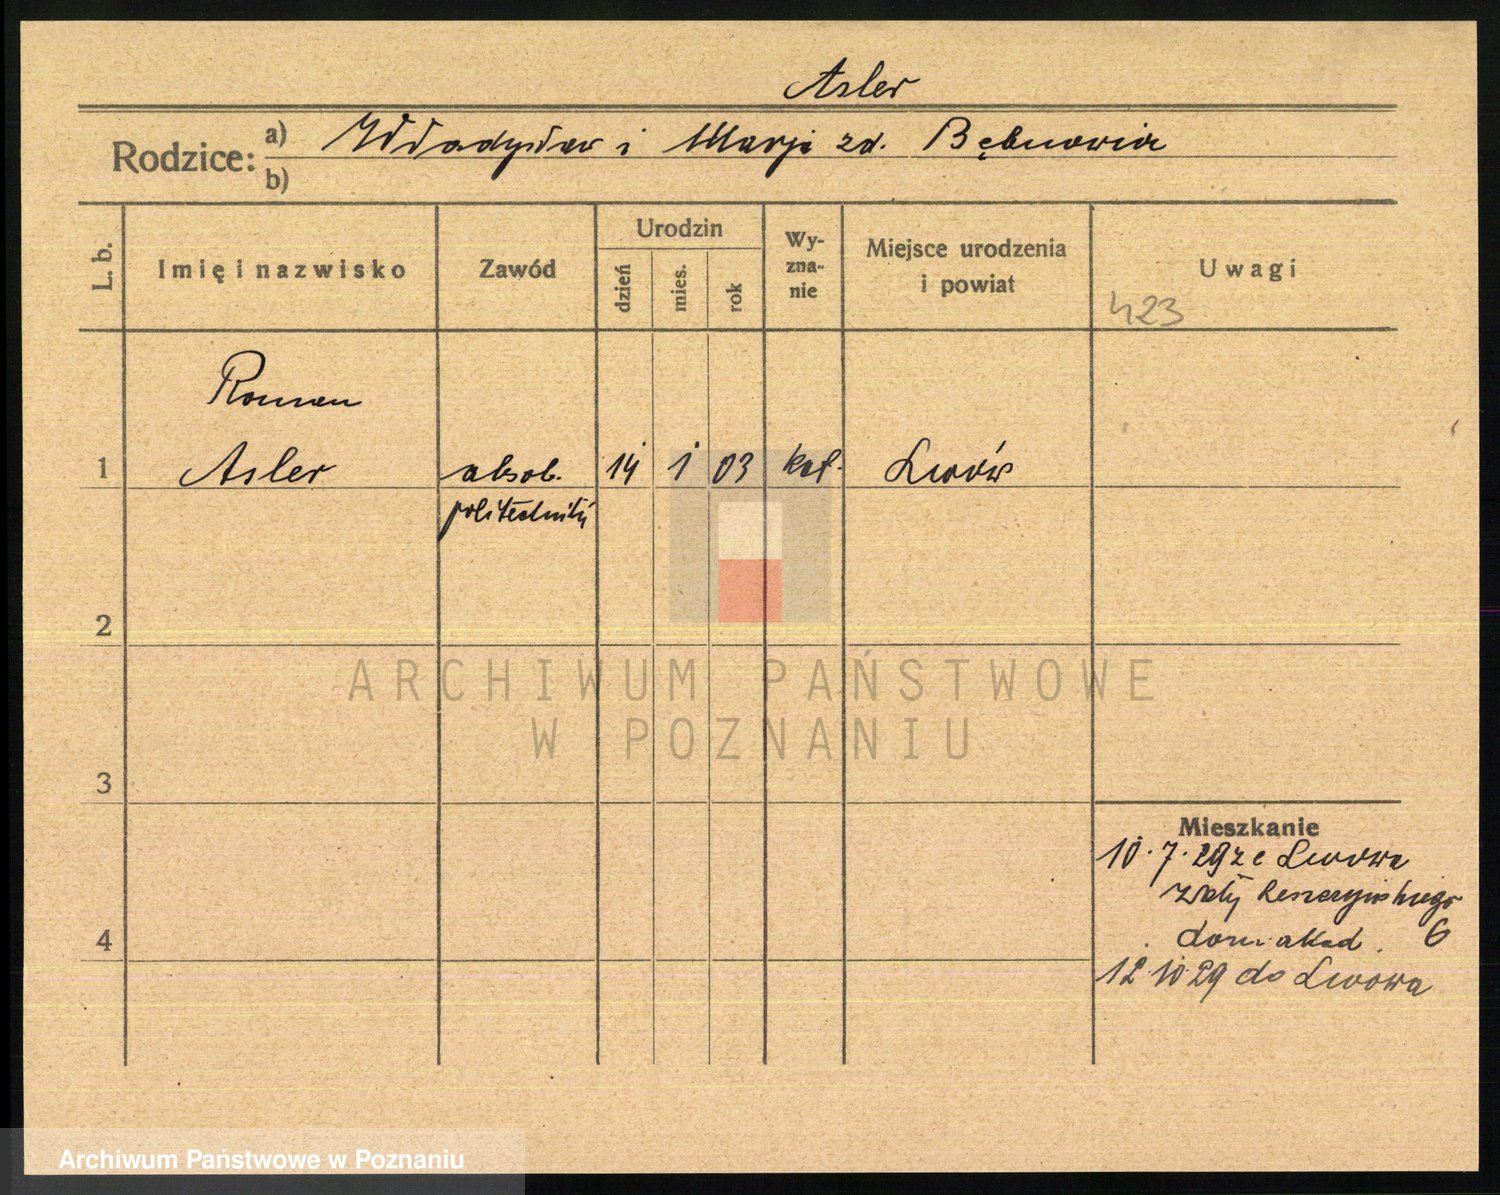 Asler
Rodzice: a) Władysław i Marja zd. Bębnowicz
b)
L. b. Imię i nazwisko Zawód Urodzin dzień mies. rok Wy-zna-nie Miejsce urodzenia i powiat Uwagi
423
Roman
1 Asler absol. 14 1 03 kat. Lwów
politechniki
2
ARCHIWUM PAŃSTWOWE
W POZNANIU
3
Mieszkanie
10.7.29 ze Lwowa
4 dom akad. 6
12.10.29 do Lwowa
Archiwum Państwowe w Poznaniu